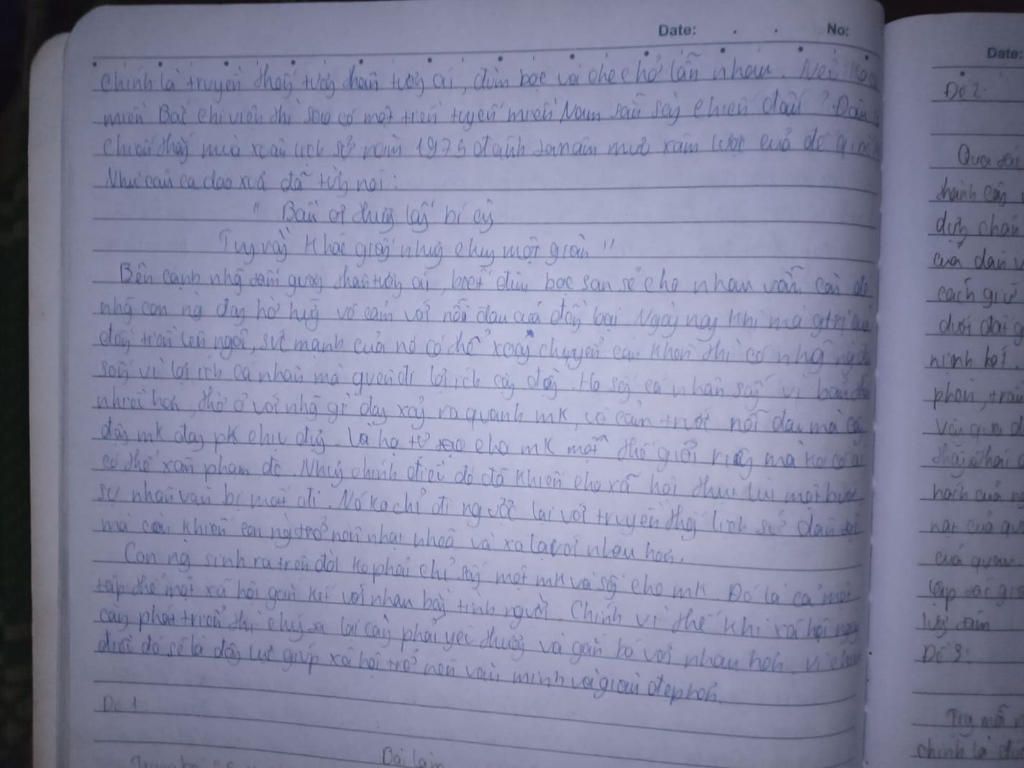 Date: . . No:
chính là truyền thống tương thân tương ái, đùm bọc và che chở lẫn nhau. Nếu
miền Bắc chi viện thì sao có một trận tuyến miền Nam sẵn sàng chiến đấu?
chiến thắng mùa xuân lịch sử năm 1975 đánh tan âm mưu xâm lược của đế quốc
Như câu ca dao xưa đã từng nói:
" Bầu ơi thương lấy bí cùng
Tuy rằng khác giống nhưng chung một giàn "
Bên cạnh những tấm gương thân tương ái, biết đùm bọc san sẻ cho nhau vẫn còn đó
nhg con ng đang hờ hững vô cảm với nỗi đau của đồng loại. Ngày nay khi mà giá trị
đồng tiền lên ngôi, sức mạnh của nó có thể xoay chuyển càn khôn thì có nhg ng
sống vì lợi ích cá nhân mà quên đi lợi ích cộng đồng. Họ sống cá nhân sống vì bản thân
nhiều hơn, thờ ơ với nhg gì đang xảy ra quanh mk, vô cảm trước nỗi đau mà
đồng mk đang pk chịu đựng. Là họ tự tạo cho mk một thế giới riêng mà ko có ai
có thể xâm phạm đc. Nhưng chính điều đó đã khiến cho xã hội thụt lùi một bước
sự nhân văn bị mất đi. Nó ko chỉ đi ngược lại với truyền thống lịch sử dân tộc
mà còn khiến con ng trở nên nhạt nhoà và xa lạ với nhau hơn.
Con ng sinh ra trên đời ko phải chỉ sống một mk và sống cho mk. Đó là cả một
tập thể một xã hội gắn kết với nhau bằng tình người. Chính vì thế khi xã hội
càng phát triển thì chúng ta lại càng phải yêu thương và gắn bó với nhau hơn. Vì
điều đó sẽ là động lực giúp xã hội trở nên văn minh và giàu đẹp hơn.
Đề 1:
Bài làm
Date:
Đề 2:
Qua
thành
dựng
của dân
cách giữ
dưới
ninh
phán,
với
thái
hách của
nạt của
của quan
lập
lấy
Đề 3:
Tuy
chính là